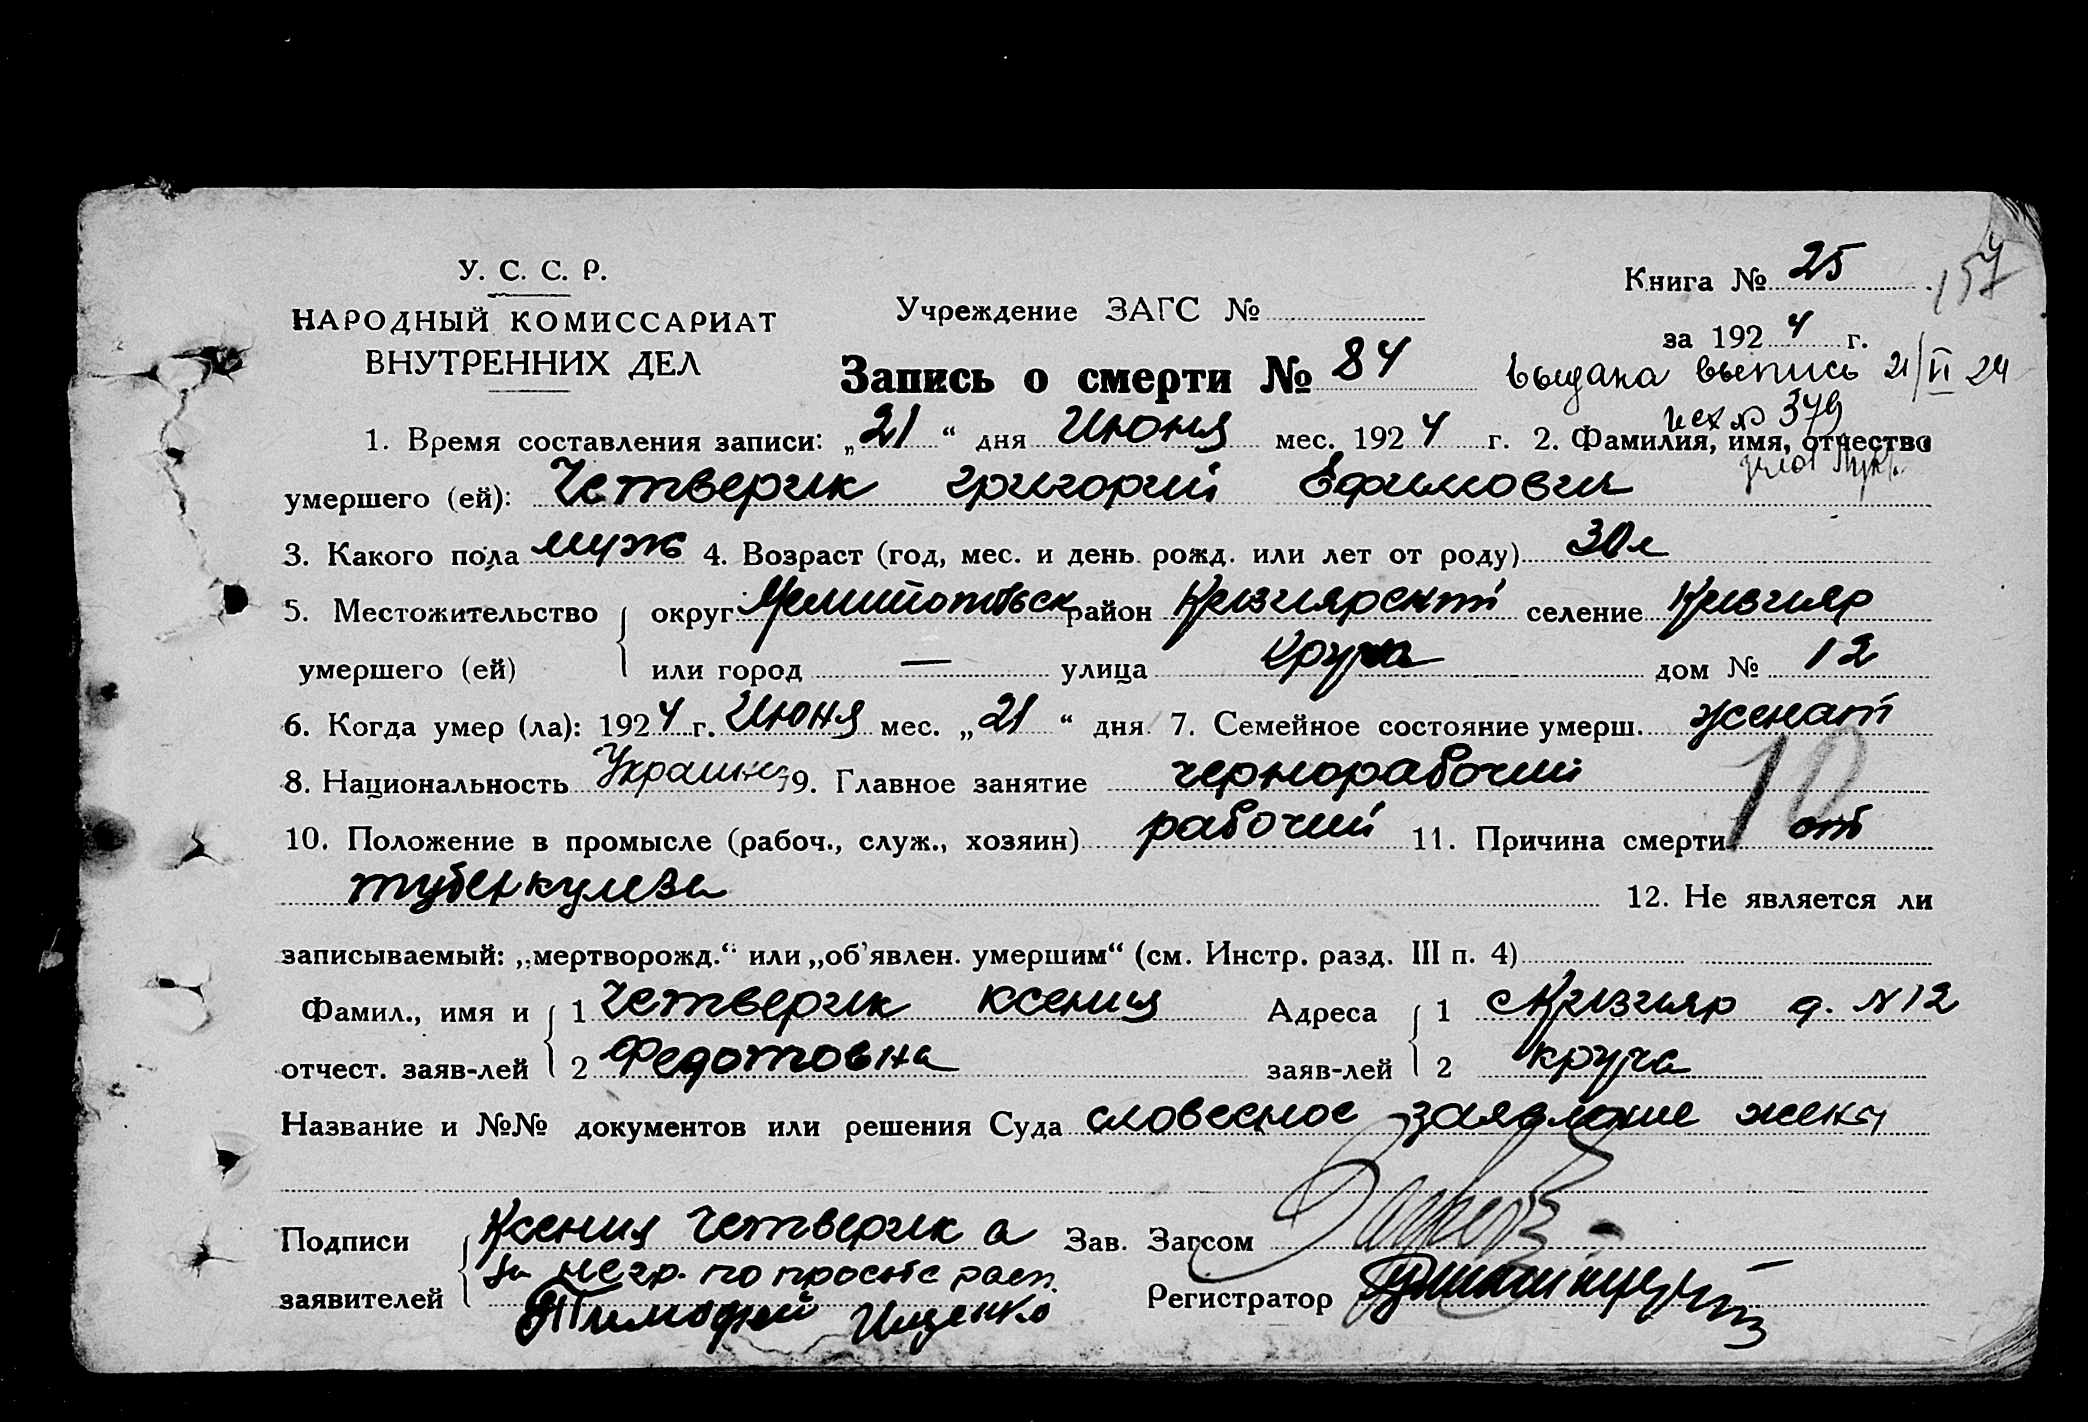 У. С. С. Р.
НАРОДНЫЙ КОМИССАРИАТ
ВНУТРЕННИХ ДЕЛ
Учреждение ЗАГС №
Книга № 25
157
за 1924 г.
Запись о смерти № 84
выдана выпись 21/VI 24
исх № 379
1. Время составления записи: „21“ дня Июня мес. 1924 г. 2. Фамилия, имя, отчество
умершего (ей): Четверик Григорий Ефимович
3. Какого пола муж 4. Возраст (год, мес. и день рожд. или лет от роду) 30 л
5. Местожительство округ Мелитопольск район Кизиярский селение Кизияр
умершего (ей) или город — улица Круча дом № 12
6. Когда умер (ла): 1924 г. Июня мес. „21“ дня 7. Семейное состояние умерш. женат
8. Национальность Украинец 9. Главное занятие чернорабочий
10
10. Положение в промысле (рабоч., служ., хозяин) рабочий 11. Причина смерти от
туберкулеза 12. Не является ли
записываемый: „мертворожд.“ или „об'явлен. умершим“ (см. Инстр. разд. III п. 4)
Фамил., имя и 1 Четверик Ксения Адреса 1 с Кизияр д. № 12
отчест. заяв-лей 2 Федотовна заяв-лей 2 круча
Название и №№ документов или решения Суда словесное заявление жены
Подписи Ксения Четверик а Зав. Загсом
за негр. по просьбе расп.
заявителей Тимофей Ищенко Регистратор